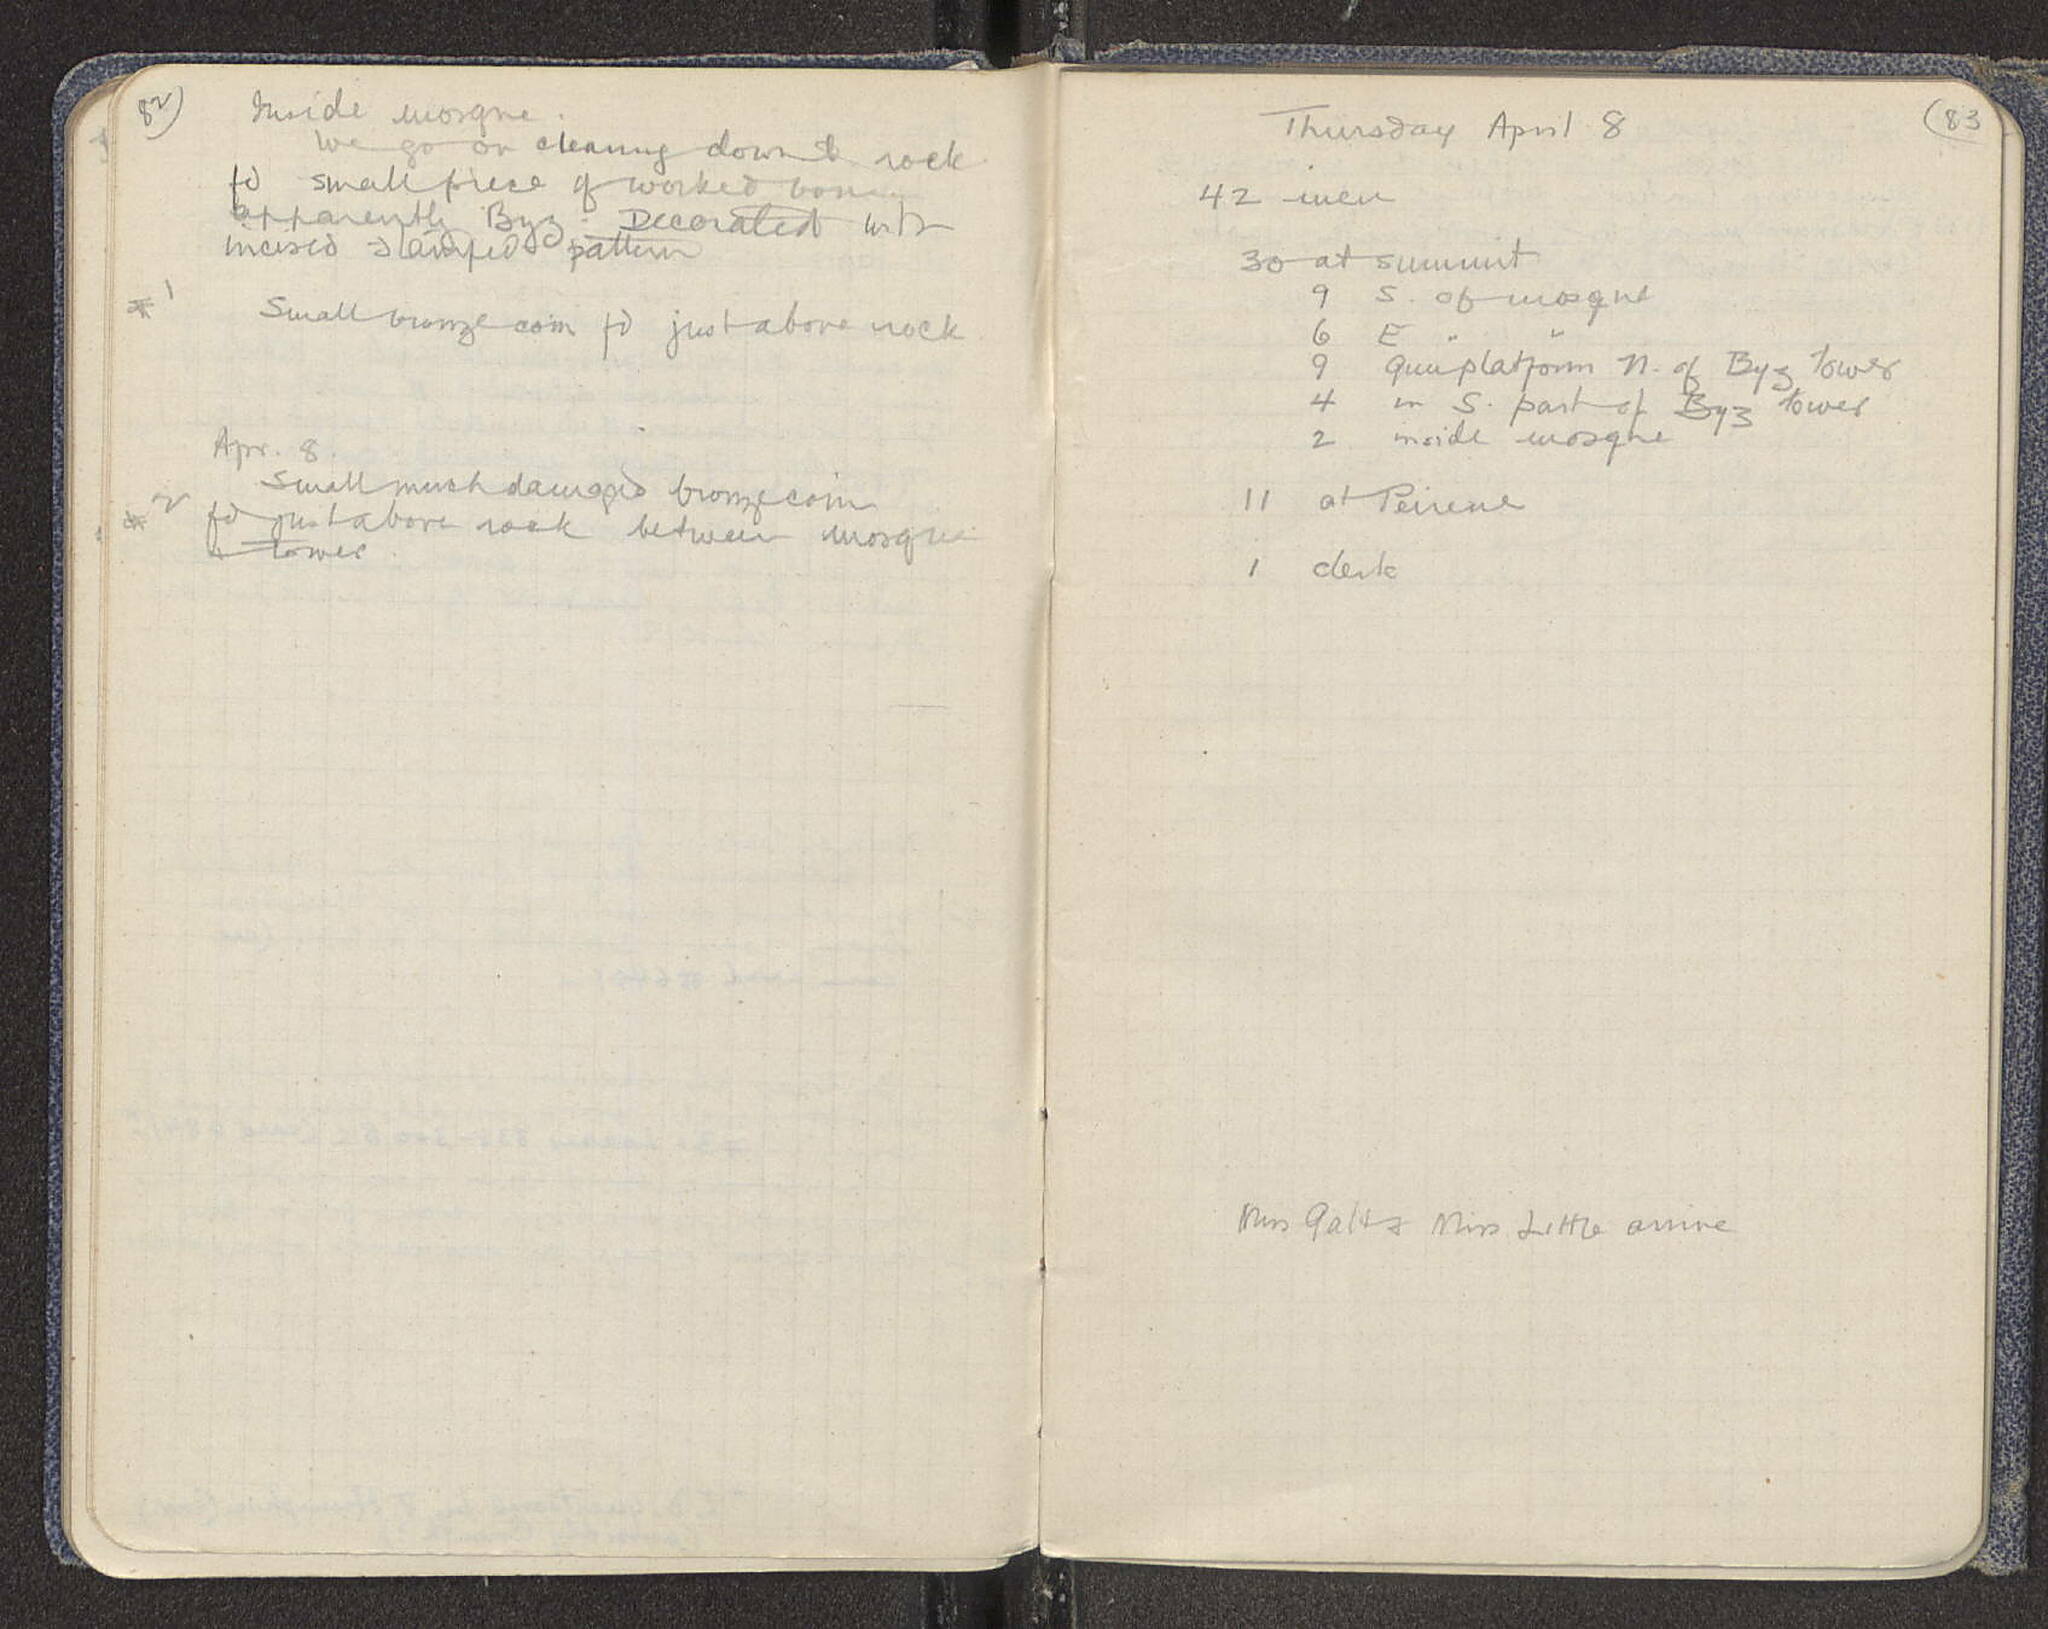 82)
Inside mosque.
We go on cleaning down to rock
fd small piece of worked bone
apparently Byz. Decorated with
incised & stamped pattern
*1
Small bronze coin fd just above rock
Apr. 8.
Small much damaged bronze coin
*2
fd just above rock between mosque
& tower.
(83
Thursday April 8
42 men
30 at summit
9 S. of mosque
6 E " "
9 gun platform N. of Byz tower
4 in S. part of Byz tower
2 inside mosque
11 at Peirene
1 clerk
Miss Galt & Miss Little arrive